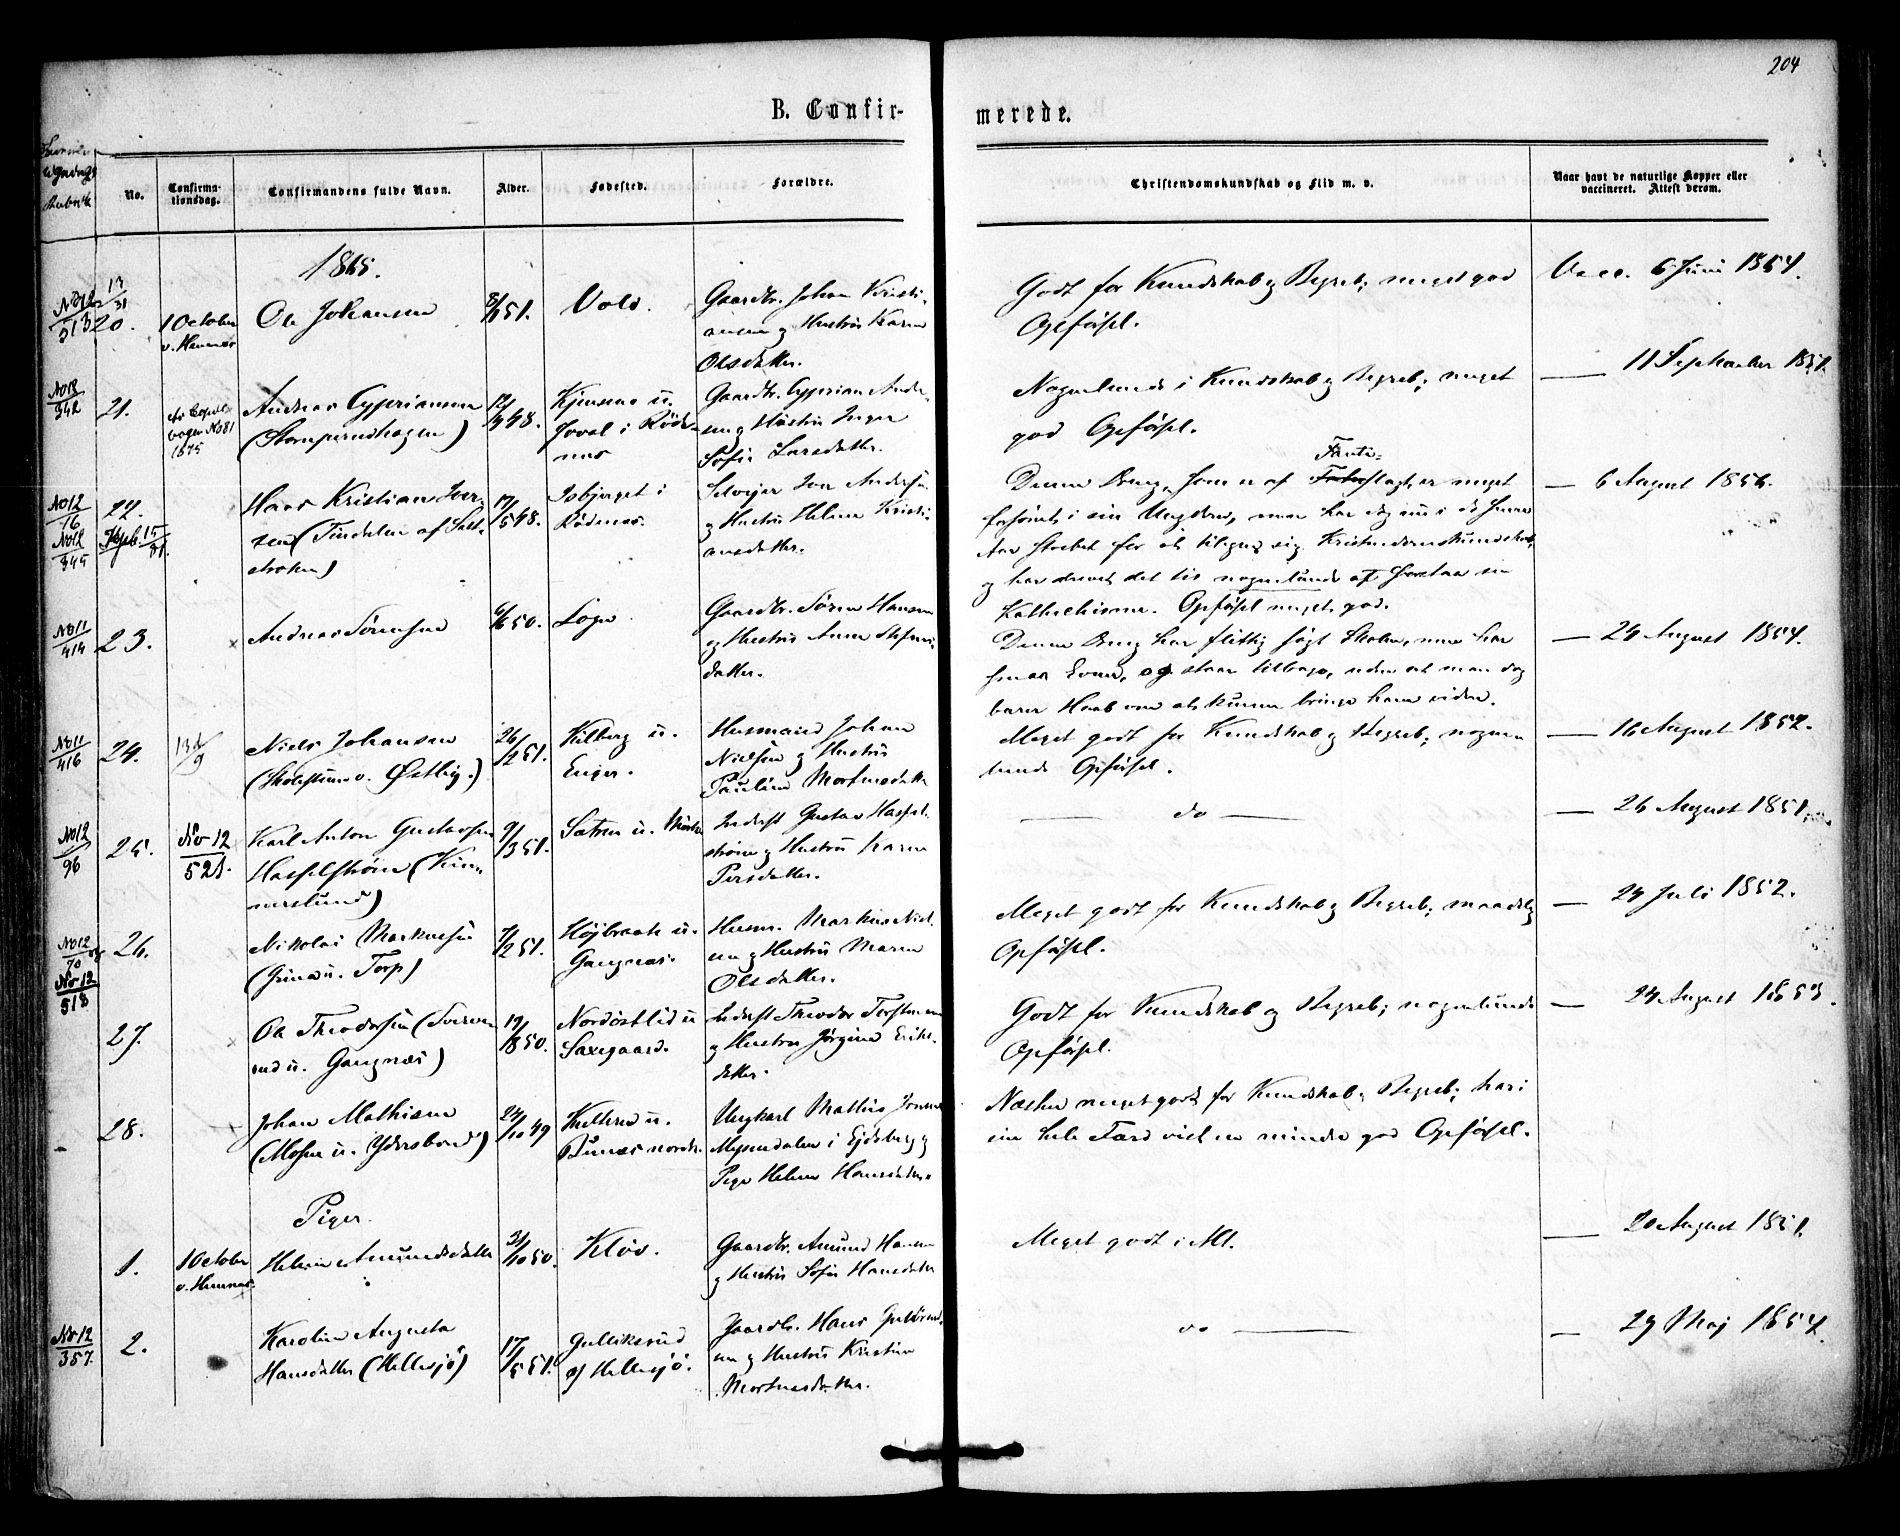 204
B. Confir-
merede.
No.
Confirma-
tionsdag.
Confirmandens fulde Navn.
Alder.
Fødested.
Forældre.
Christendomskundskab og Flid m. v.
Naar havt de naturlige Kopper eller
vaccineret. Attest derom.
1865.
No 12
513
13
31
20.
1 October
v. Hemnæs
Ole Johansen
8/1 51.
Vold.
Gaardbr. Johan Kristi-
ansen og Hustru Karen
Olsdatter.
Godt for Kundskab og Begreb; meget god
Opførsel.
Vacc. 6 Juni 1854.
No 13
342
21.
No 81
1875
Andreas Cypriansen
12/ 48.
i Röde-
næs
Gaardbr. Cyprian Ander-
sen og Hustru Inger
Sofie Larsdatter.
Nogenlunde i Kundskab og Begreb; meget
god Opførsel.
— 11 September 1851.
No 12
16
No 12
345
22.
15/
Hans Kristian Iver-
sen (Tindelen af Sult-
17/5 48.
Isbjerget i
Rödenæs.
Selveier Iver Andersen
og Hustru Helene Kristi-
ansdatter.
Denne Dreng, som er af Fanteslagt, er meget
forsömt i sin Ungdom, men har dog nu i de senere
Aar stræbet for at tilegne sig Kristendomskundskab,
og har drevet det til nogenlunde at forstaa sin
Kathechisme. Opførsel meget god.
— 6 August 1856.
No 11
414
23.
Andreas Sörensen
6/6 50.
Gaardbr. Sören Hansen
og Hustru Anne
datter.
Denne Dreng har flittig søgt Skolen, men har
smaa Evner, og staar tilbage, uden at man dog
bærer Haab om at kunne bringe ham videre.
— 24 August 1854.
No 11
416
24.
Niels Johansen
(Skolestuen v. Østby.)
26/12 51.
Kilberg u.
Enger.
Husmand Johan
Nielsen og Hustru
Pauline Mortensdatter
Meget godt for Kundskab og Begreb; nogen-
lunde Opførsel.
— 16 August 1852.
No 12
96
25.
No 12
521.
Karl Anton Gustavsen
Hasselström (Kin-
nerslund)
9/3 51.
Sætren u.
Inderst Gustav Hassel-
ström og Hustru Karen
Persdatter.
— do —
— 26 August 1851.
No 12
70
No 12
518
26.
Nikolai Markusen
u. Torp)
/2 51.
Höjbraate u.
Gangnæs.
Husm. Markus Niel-
sen og Hustru Maren
Olsdatter.
Meget godt for Kundskab og Begreb; maadelig
Opførsel.
— 24 Juli 1852.
27.
Ole Theodorsen
u. Gangnæs)
19/8 50.
Nordöstlid u
Saxegaard.
Inderst Theodor Torstensen
og Hustru Jörgine Eriks-
datter.
Godt for Kundskab og Begreb; nogenlunde
Opførsel.
— 24 August 1853.
28.
Johan Mathisen
(Mosen u. Ydersbond)
24/10 49
u.
Bunæs nordr.
Ungkarl Mathis Jonsen
Mysendalen i Ejdsberg og
Pige Helene Hansdatter.
Næsten meget godt for Kundskab og Begreb; har i
sin hele Færd vist en mindre god Opførsel.
Piger.
1.
1 October
v. Hemnæs
Helene Amundsdatter
31/10 50.
Klöv.
Gaardbr. Amund Hansen
og Hustru Sofie Hansdatter
Meget godt i Alt.
— 20 August 1851.
No 12
357.
2.
Karoline Augusta
Hansdatter (Hellesjö)
17/5 51.
Gulliksrud
af Hellesjö.
Gaardbr. Hans
sen og Hustru Kristine
Mortensdatter.
do —
— 29 Maj 1854.